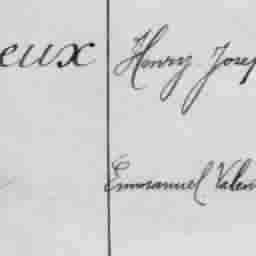 eux Henry Josep
Emmanuel Valen